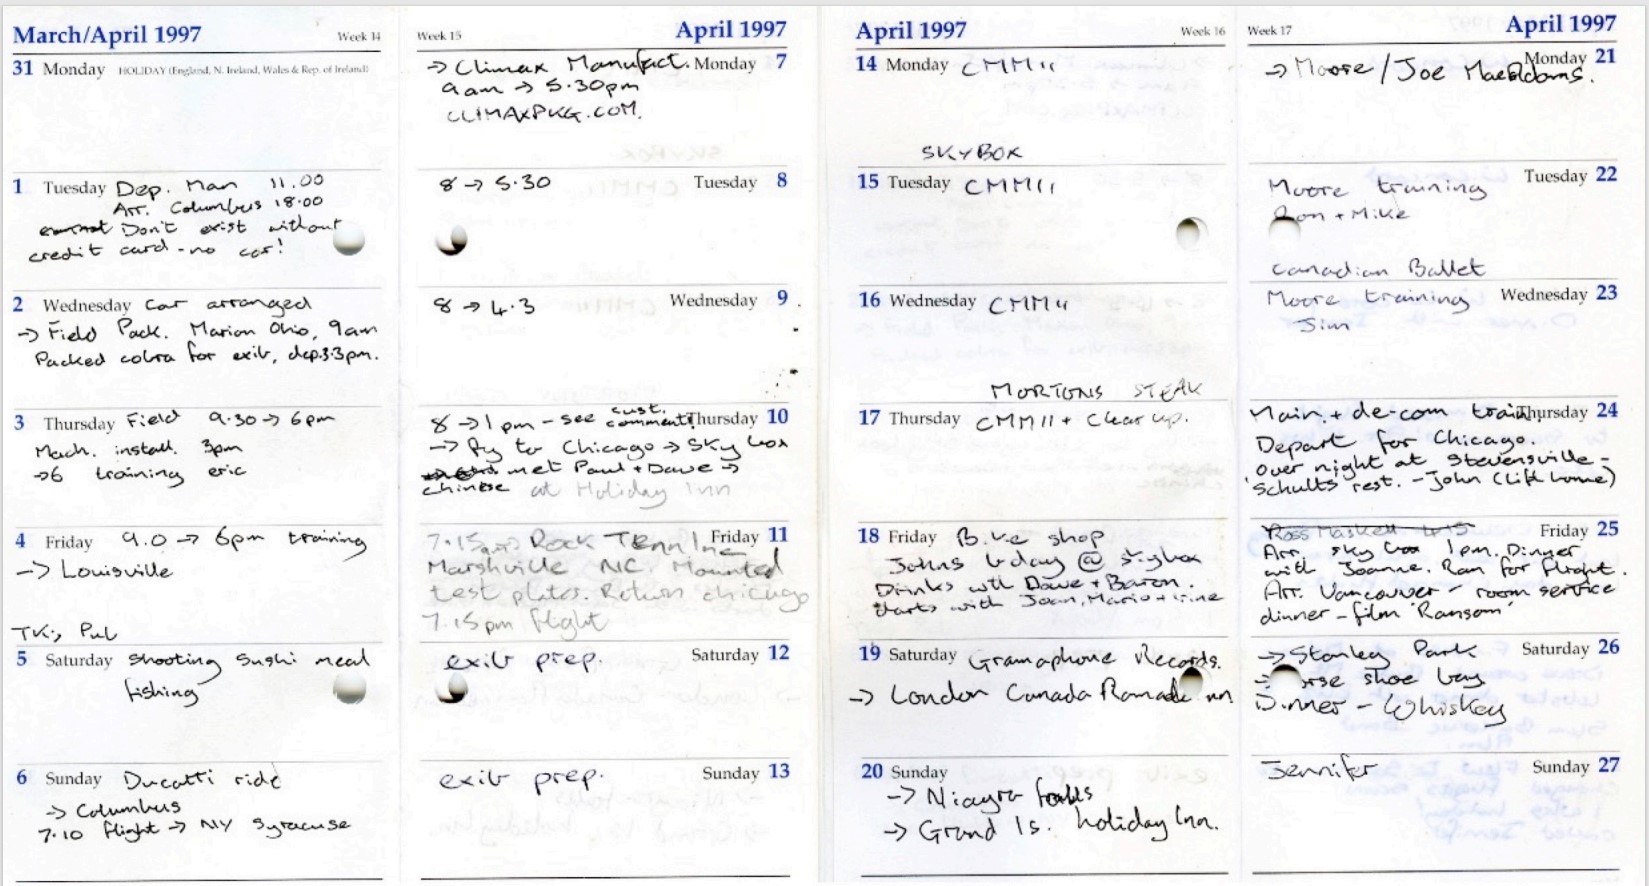 March/April 1997
Week 14
31 Monday HOLIDAY (England, N. Ireland, Wales & Rep. of Ireland)
1 Tuesday Dep. Man 11.00
Arr. Columbus 18.00
Don't exist without
credit card - no car!
2 Wednesday Car arranged
→ Field Pack. Marion Ohio, 9am
Packed cobra for exib, dep.3.3pm.
3 Thursday Field 9.30 → 6pm
Mach. install. 3pm
→6 training eric
4 Friday 9.0 → 6pm training
→ Louisville
TK's Pub
5 Saturday Shooting Sushi meal
fishing
6 Sunday Ducatti ride
→ Columbus
7.10 flight → NY Syracuse
Week 15
April 1997
→ Climax Manufact. Monday 7
9am → 5.30pm
CLIMAXPKG.COM.
8 → 5.30 Tuesday 8
8 → 4.3 Wednesday 9
8 → 1pm - see cust. comments Thursday 10
→ fly to Chicago → Sky box
met Paul + Dave →
chinese at Holiday Inn
7.15am Rock Tenn Inc Friday 11
Marshville NC. Mounted
test plates. Return chicago
7.15pm flight
exib prep. Saturday 12
exib prep. Sunday 13
April 1997
Week 16
14 Monday CMM11
SKYBOX
15 Tuesday CMM11
16 Wednesday CMM11
MORTONS STEAK
17 Thursday CMM11 + Clear up.
18 Friday Bike shop
Johns bday @ Skybox
Drinks with Dave + Baron.
darts with Joan, Mario + irine
19 Saturday Gramaphone Records.
→ London Canada Ramada inn
20 Sunday
→ Niagra falls
→ Grand Is. holiday Inn.
Week 17
April 1997
→ Moore / Joe Monday 21
Moore training Tuesday 22
Ron + Mike
Canadian Ballet
Moore training Wednesday 23
Jim
Main + de-com train. Thursday 24
Depart for Chicago.
Over night at Stevensville -
Schults rest. - John (lift home)
Ross Maskell 4.15 Friday 25
Arr. sky box 1pm. Dinner
with Joanne. Ran for flight.
Arr. Vancouver - room service
dinner - film 'Ransom'
→ Stanley Park Saturday 26
→ shoe bay
Dinner - Whiskey
Jennifer Sunday 27